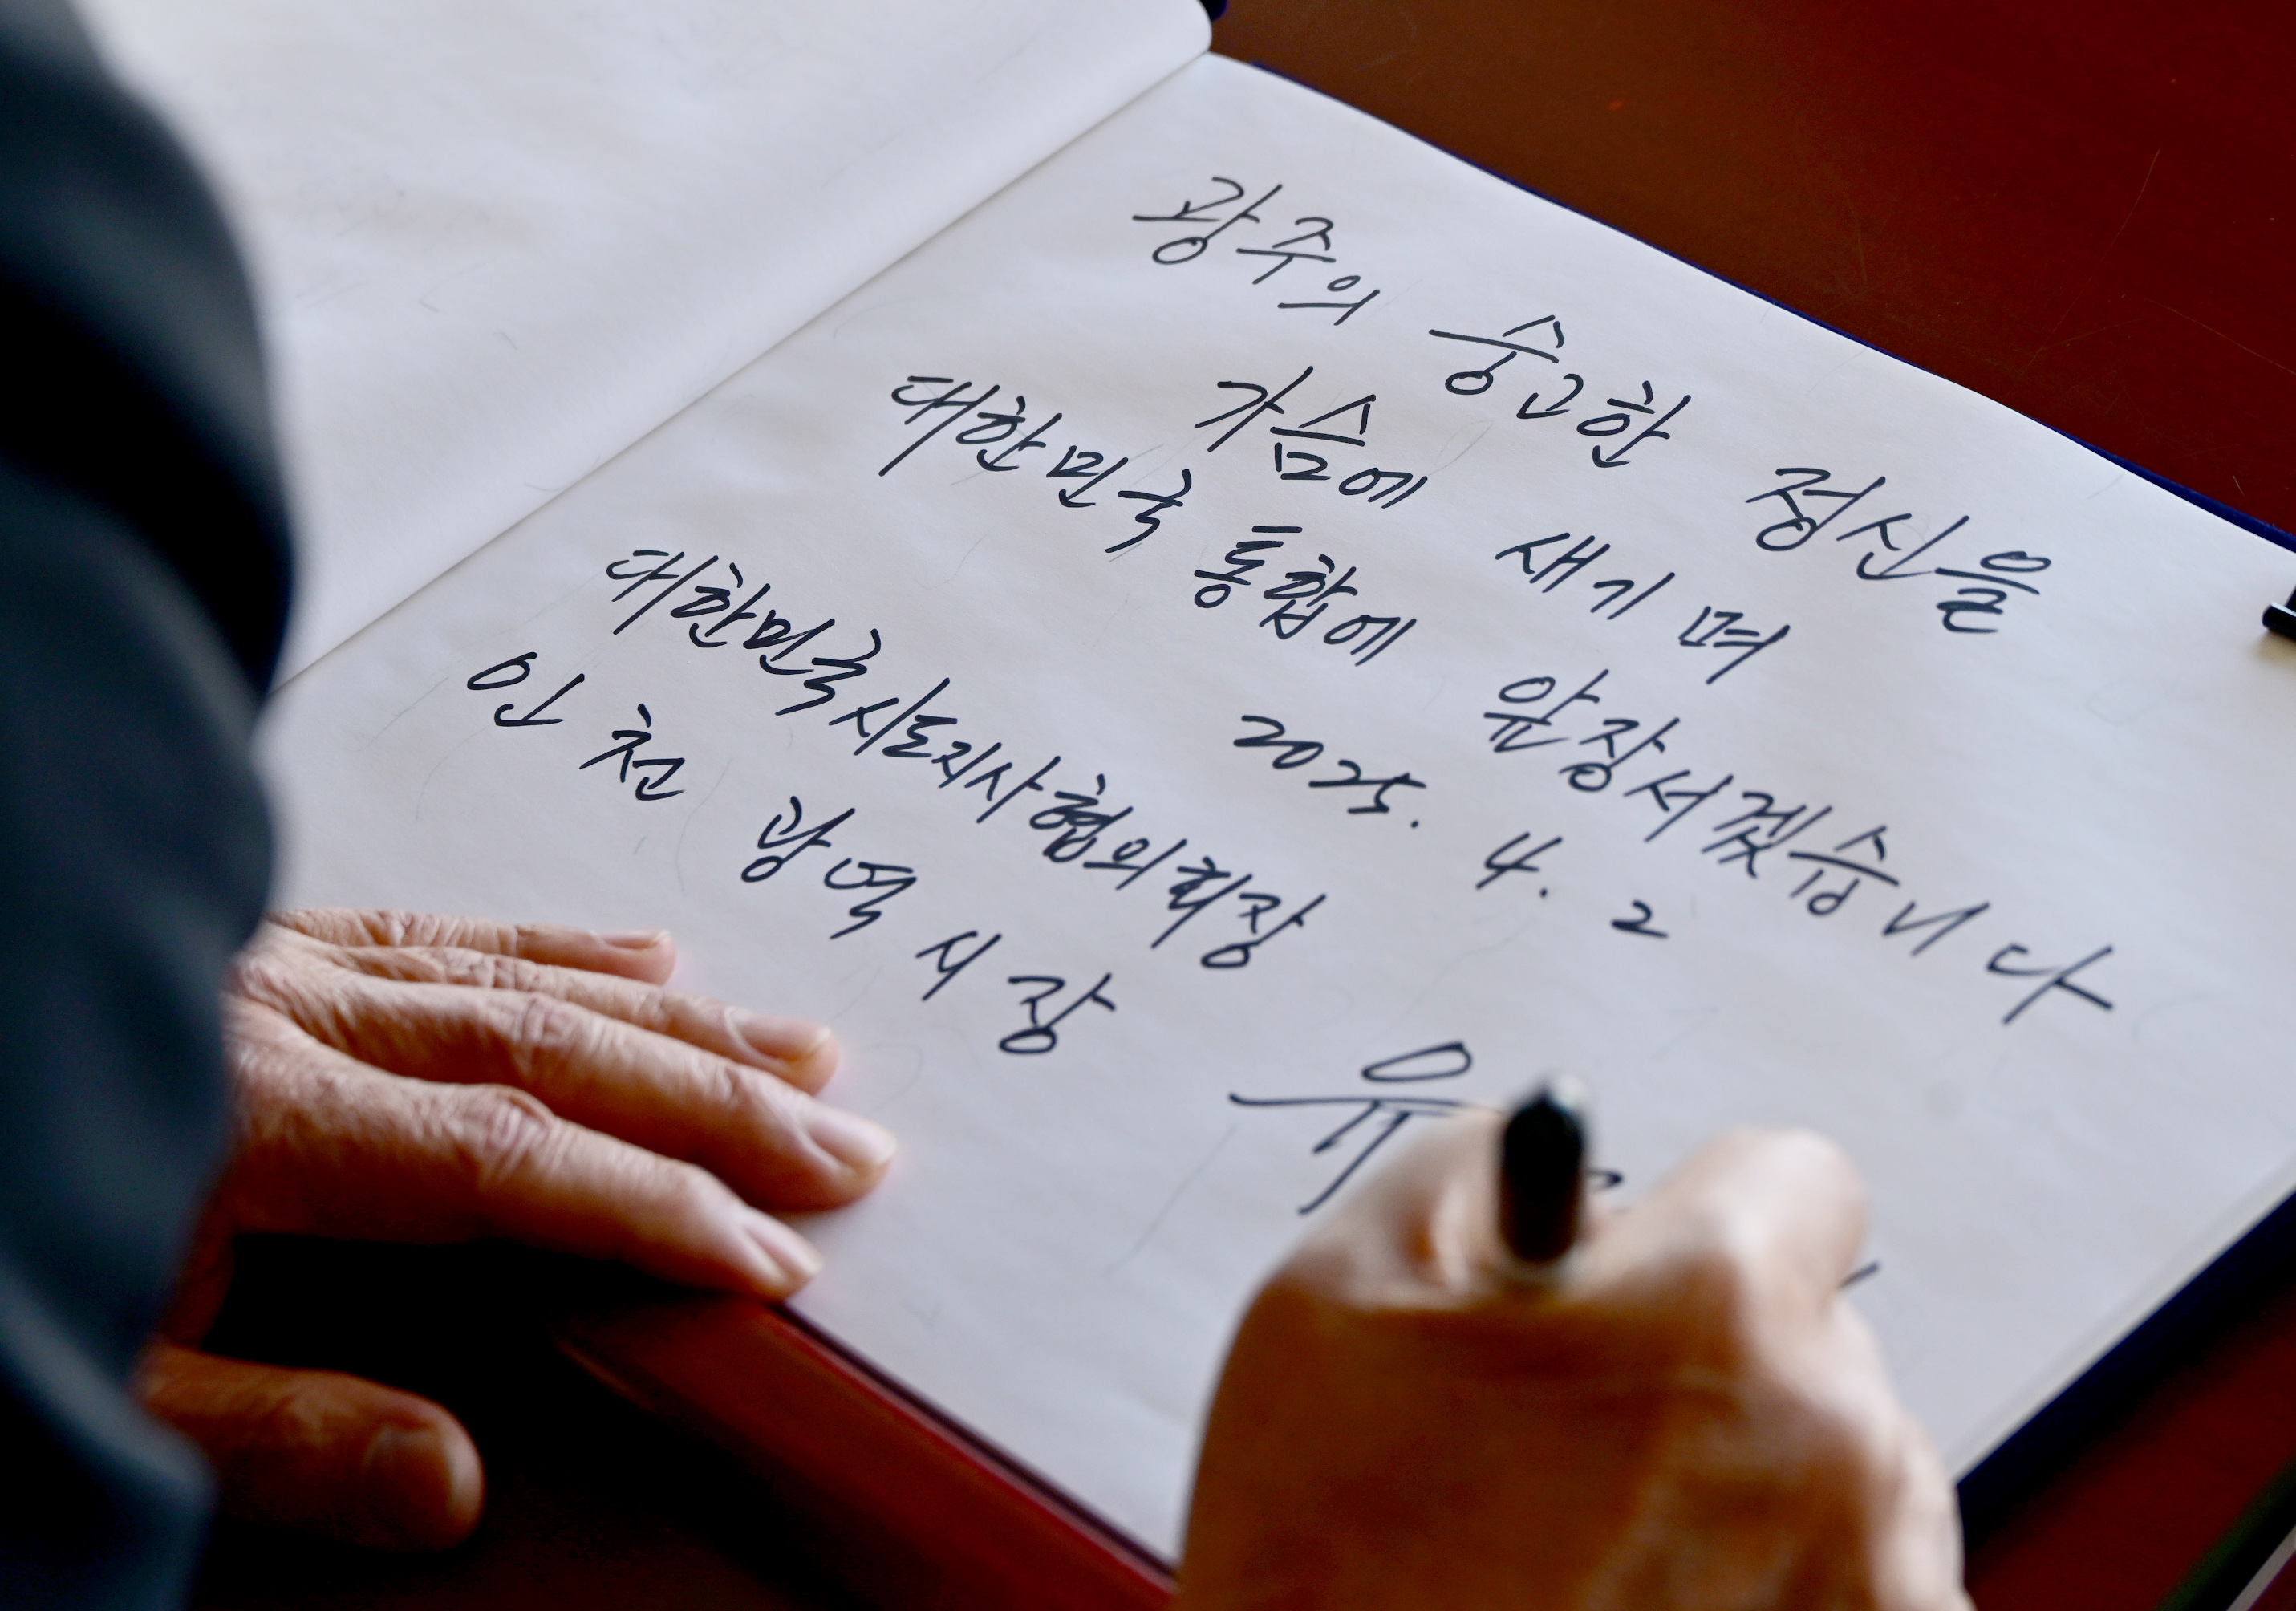 광주의 숭고한 정신을
가슴에 새기며
대한민국 통합에 앞장서겠습니다
2025. 4. 2
대한민국시도지사협의회장
인천광역시장
유